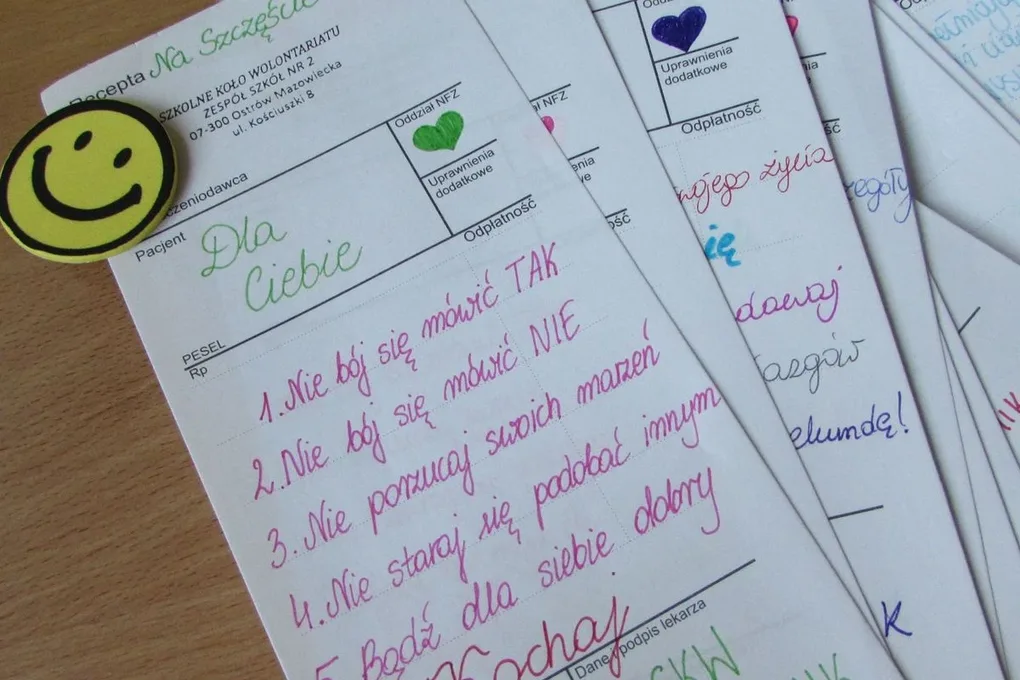 Recepta Na Szczęście
SZKOLNE KOŁO WOLONTARIATU
ZESPÓŁ SZKÓŁ NR 2
07-300 Ostrów Mazowiecka
ul. Kościuszki 8
Oddział NFZ
Uprawnienia
dodatkowe
Pacjent
Dla
Ciebie
Odpłatność
PESEL
Rp
1. Nie bój się mówić TAK
2. Nie bój się mówić NIE
3. Nie porzucaj swoich marzeń
4. Nie staraj się podobać innym
5. Bądź dla siebie dobry
Kochaj
Dane i podpis lekarza
SKW
NFZ
Oddział NFZ
Uprawnienia
dodatkowe
Odpłatność
życia
ię
K